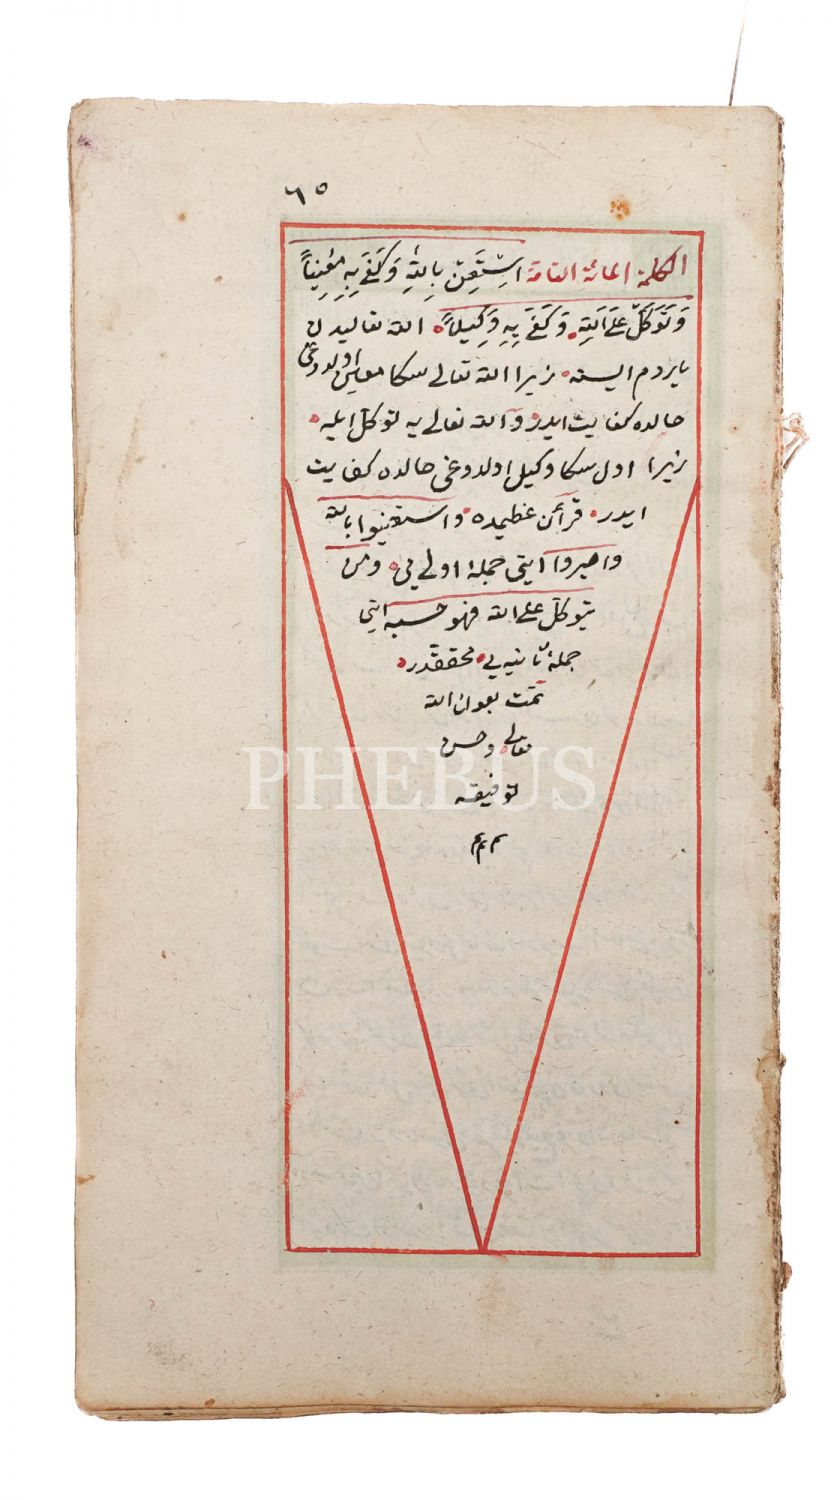 ٦٥
الكلمة المائة التامة اِسْتَعِنْ بِاللهِ وَكَفَى بِهِ مُعِيناً
وَتَوَكَّلْ عَلَى اللهِ وَكَفَى بِهِ وَكِيلاً الله تعاليدن
ياردم ايسته زيرا الله تعالى سكا معين اولدوغى
حالده كفايت ايدر و الله تعالى يه توكل ايله
زيرا اول سكا وكيل اولدوغى حالده كفايت
ايدر قرآن عظيمده واستعينوا بالله
واصبروا ايتى جملۀ اولى يى ومن
يتوكل على الله فهو حسبه ايتى
جملۀ ثانيه يى محققدر
تمت بعون الله
تعالى وحسن
توفيقه
م م م
PHEBUS